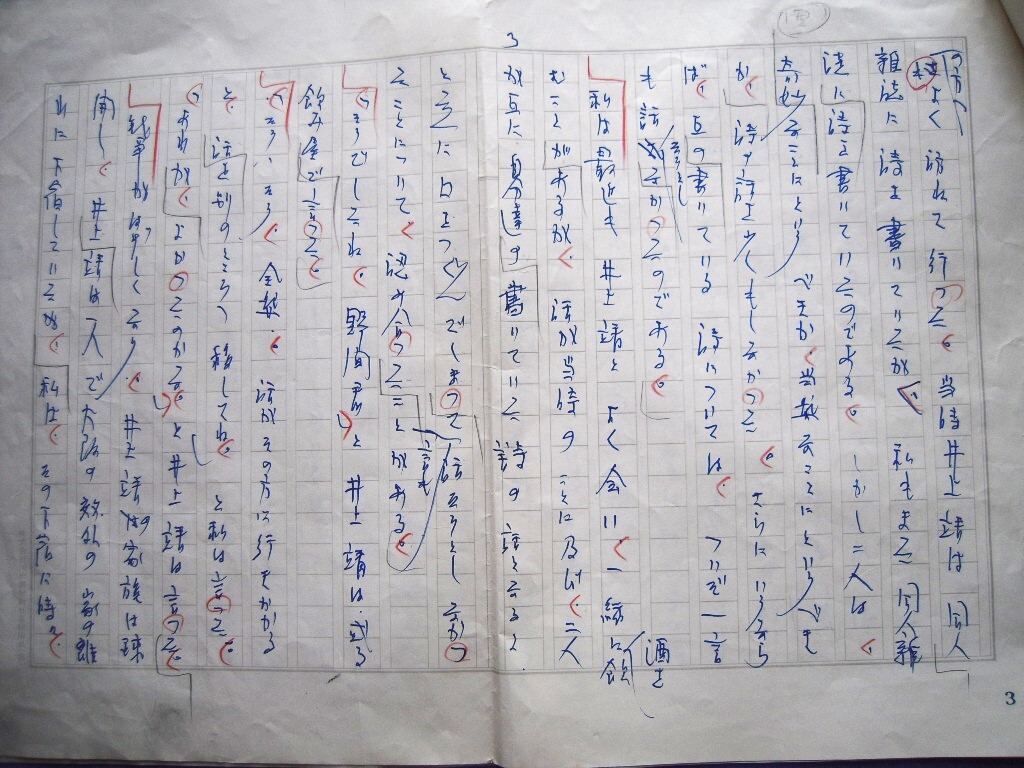 3
よく訪ねて行った。当時井上靖は同人
雑誌に詩を書いていたが、私もまた同人雑
誌に詩を書いていたのである。しかし二人は、
奇妙なことにというべきか、当然なことにというべき
か、詩の話は少しもしなかった。さらにいうなら
ば、互の書いている詩については、ついぞ一言
も話さなかったのである。
私は最近も井上靖とよく会い、一緒に酒を
むことがあるが、話が当時のことに及び、二人
が互に自分達の書いていた詩の話となると
という に口をつぐんでしまって話そうとしなかっ
たことについて、認め合ったことがある。
「そうでしたね。」野間君と井上靖は或る
飲み屋で言った。
「そう、そう、全然、話がその方に行きかかる
と、話を別のところへ移してね。」と私は言った。
「あれが、よかったのかな。」と井上靖は言った。
戦争がはげしくなり、井上靖の家族は疎
開し、井上靖は一人で大阪の郊外の家の離
れに下宿していたが、私は、その下宿に時々、
3